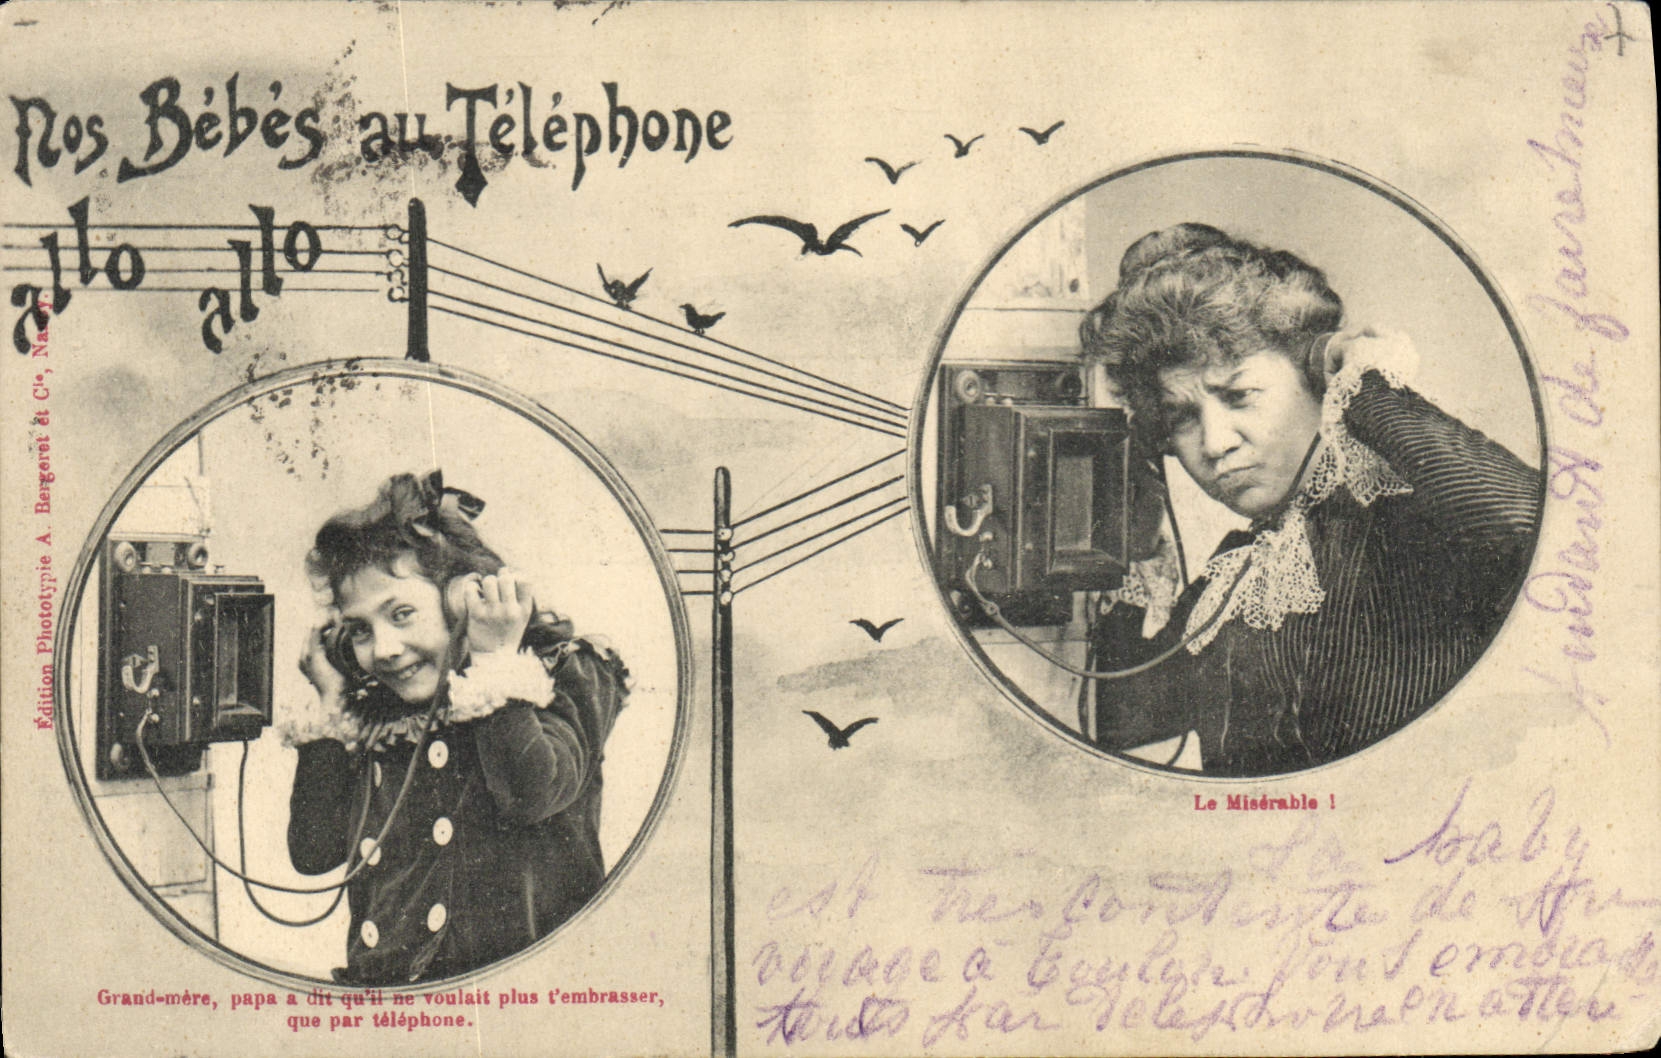 Nos Bébés au Téléphone
allo allo
Édition Phototypie A. Bergeret et Cie, Nancy.
Le Misérable !
Grand-mère, papa a dit qu'il ne voulait plus t'embrasser,
que par téléphone.
baby
est très contente de
voyage à Toulon. Vous embrasse
tous par téléphone en atten
dant de faire mieux